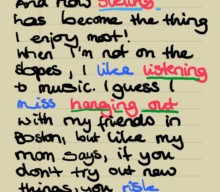 And now
has become the thing
I enjoy most!
When I'm not on the
slopes, I like listening
to music. I guess I
miss hanging out
with my friends in
Boston, but like my
mom says, if you
don't try out new
things, you risk